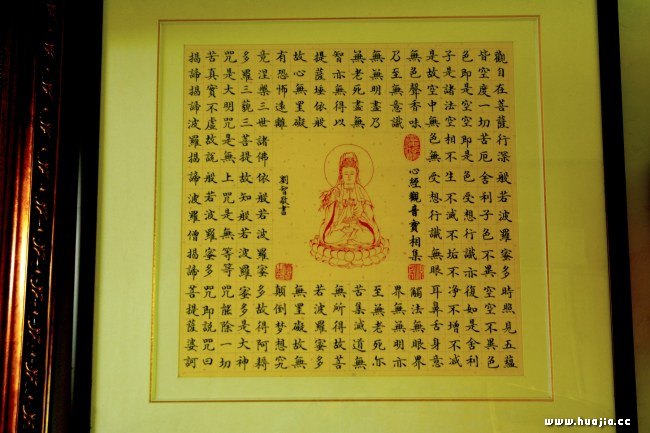 觀自在菩薩行深般若波羅蜜多時照見五蘊
皆空度一切苦厄舍利子色不異空空不異色
色即是空空即是色受想行識亦復如是舍利
子是諸法空相不生不滅不垢不淨不增不減
是故空中無色無受想行識無眼耳鼻舌身意
無色聲香味觸法無眼界
乃至無意識界無無明亦
無無明盡乃至無老死亦
無老死盡無苦集滅道無
智亦無得以無所得故菩
提薩埵依般若波羅蜜多
故心無罣礙無罣礙故無
有恐怖遠離顛倒梦想究
竟涅槃三世諸佛依般若波羅蜜多故得阿耨
多羅三藐三菩提故知般若波羅蜜多是大神
咒是大明咒是無上咒是無等等咒能除一切
苦真實不虛故說般若波羅蜜多咒即說咒曰
揭諦揭諦波羅揭諦波羅僧揭諦菩提薩婆訶
心經觀音寶相集
劉智敬書
www.huajia.cc